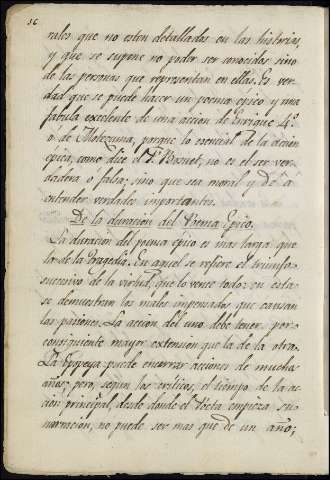 56
rales que no esten detallados en las historias,
y que se supone no poder ser conocidos sino
de las personas que representan en ellas. Es ver-
dad que se puede hacer un poema epico y una
fabula excelente de una accion de Enrique 4.º
ó de Motezuma, porque lo esencial de la accion
epica, como dice el P. Bosuet, no es el ser ver-
dadera o falsa; sino que sea moral y dé a
entender verdades importantes.
De la duracion del Poema Epico.
La duracion del poema epico es mas larga que
la de la Tragedia. En aquel se refiere el triunfo
sucesivo de la virtud, que lo vence todo: en esta
se demuestran los males impensados que causan
las pasiones. La accion del uno debe tener por
consiguiente mayor extension que la de la otra.
La Epopeya puede encerrar acciones de muchos
años; pero, segun los criticos, el tiempo de la ac-
cion principal, desde donde el Poeta empieza su
narracion, no puede ser mas que de un año;